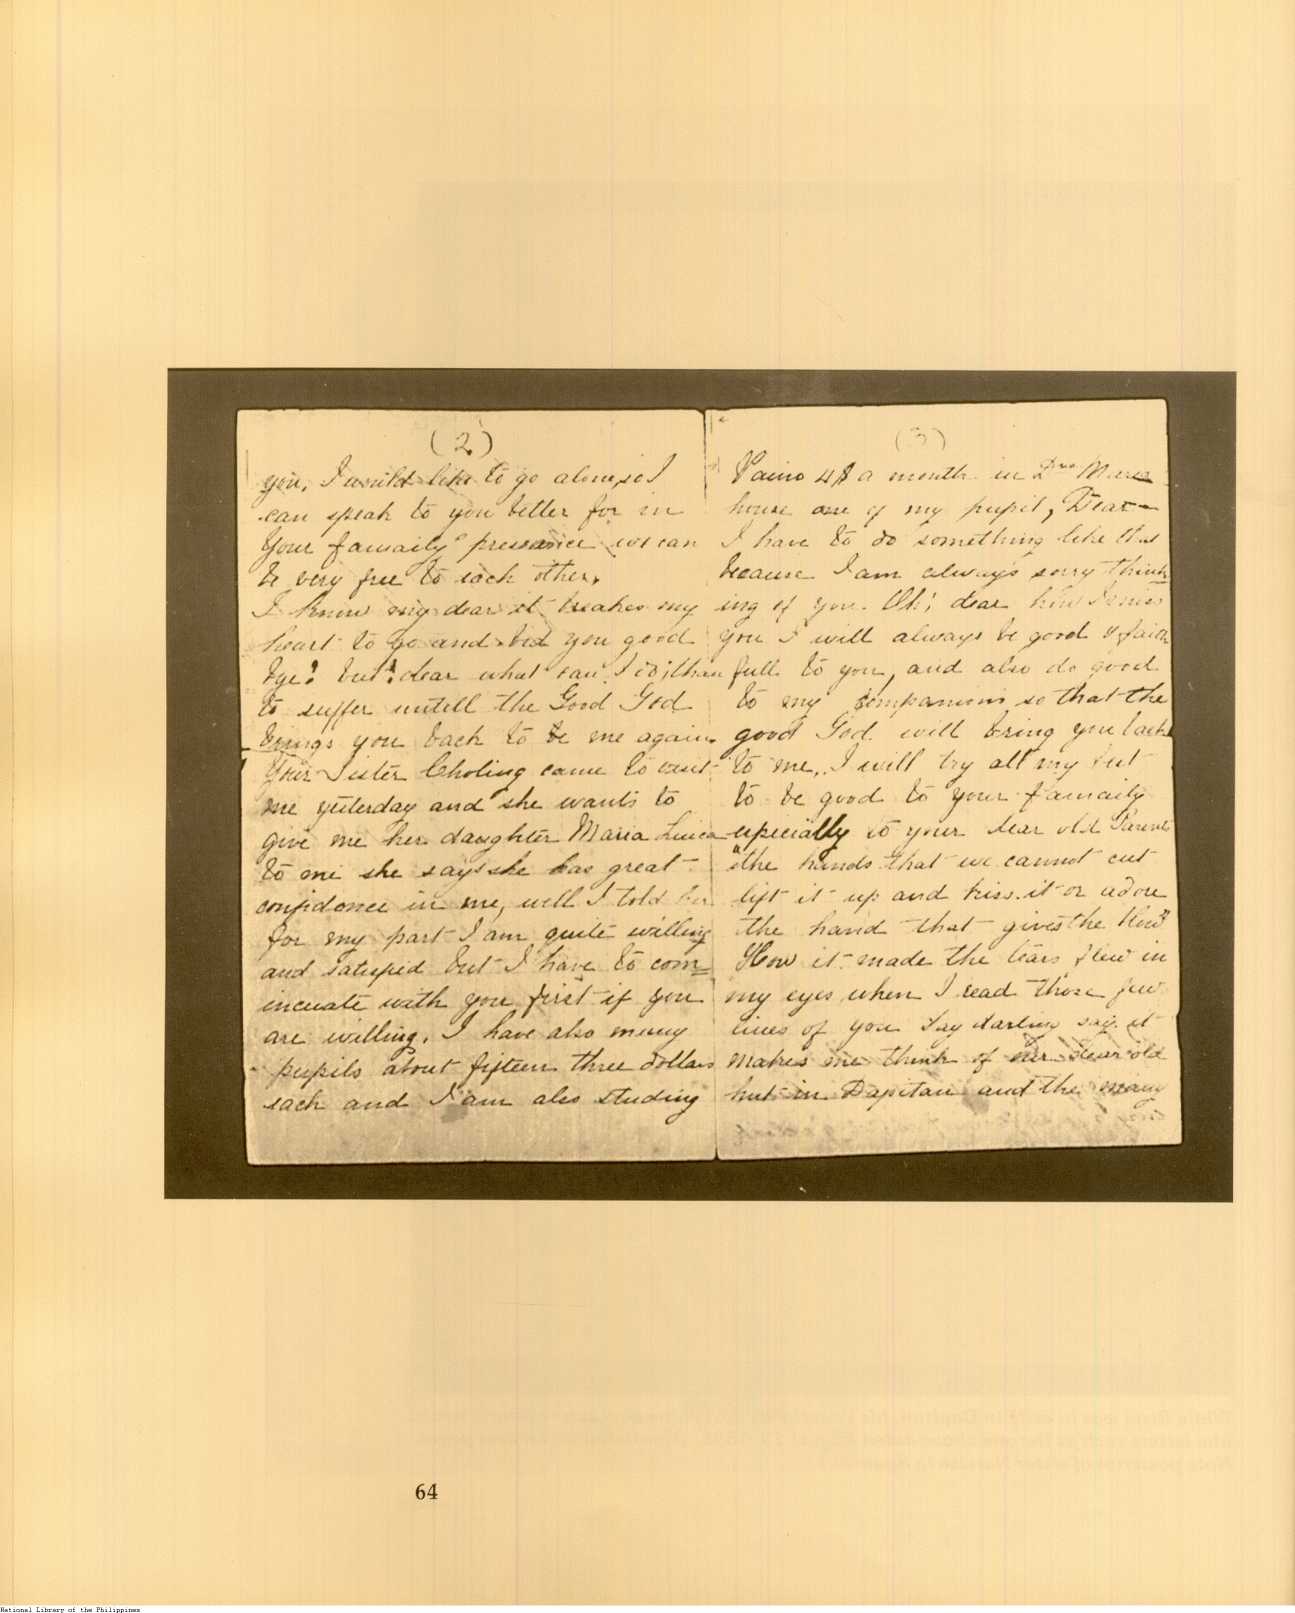 (2)
you, I would like to go alone, so I
can speak to you better for in
Your famaily's pressance we can
be very free to each other.
I know my dear it breakes my
heart to go and bid you good
bye? but! dear what can I do; than
to suffer untill the Good God
brings you back to be me again.
Your Sister Choling came to visit
me yesterday and she wants to
give me her daughter Maria Luisa
to me she says she has great
confidence in me, well I told her
for my part I am quite willing
and satisfied but I have to com=
incuate with you first if you
are willing. I have also many
pupils about fifteen three dollars
each and I am also studing
(3)
Paino 4$ a month in Dna Maria
house one of my pupil, Dear
I have to do something like that
because I am always sorry think
ing of you. Oh! dear how I miss
you I will always be good & faith
full to you, and also do good
to my companions so that the
good God will bring you back
to me, I will try all my best
to be good to your famaily
especially to your dear old Parents
"the hands that we cannot cut
lift it up and kiss it or adore
the hand that gives the blow"
How it made the tears flew in
my eyes when I read those few
lines of you Say darling say it
makes me think of our dear old
hut in Dapitan and the many
64
National Library of the Philippines